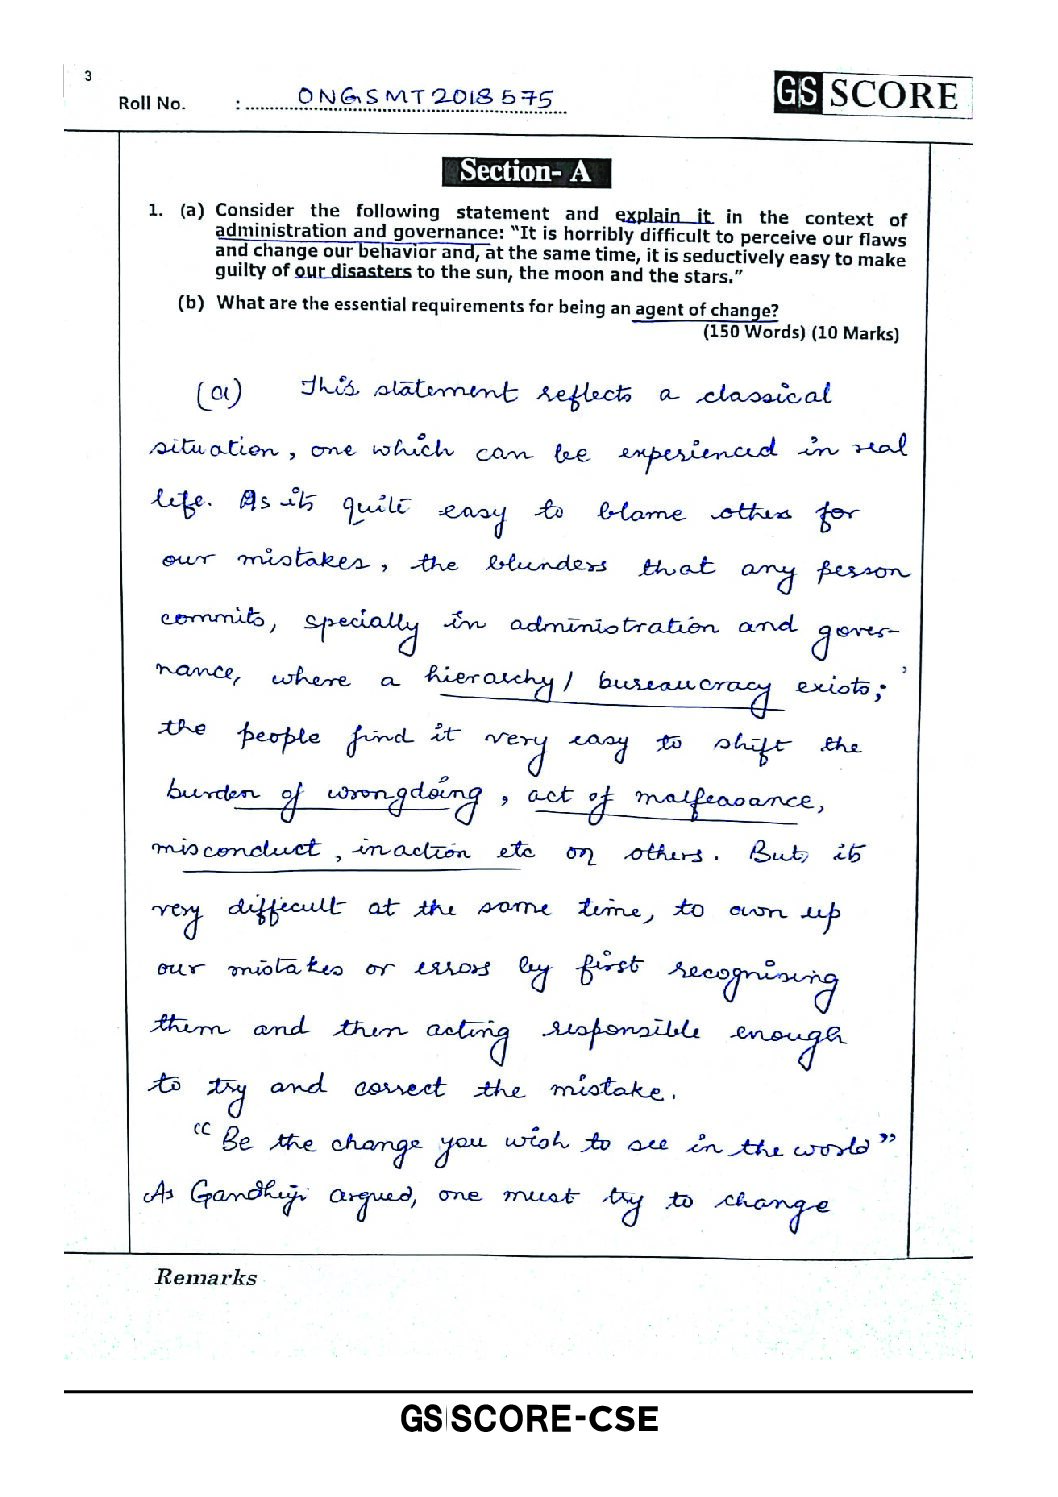 3
Roll No. : ONGSMT2018575
GS SCORE
Section- A
1. (a) Consider the following statement and explain it in the context of
administration and governance: "It is horribly difficult to perceive our flaws
and change our behavior and, at the same time, it is seductively easy to make
guilty of our disasters to the sun, the moon and the stars."
(b) What are the essential requirements for being an agent of change?
(150 Words) (10 Marks)
(a) This statement reflects a classical
situation, one which can be experienced in real
life. As its quite easy to blame others for
our mistakes, the blunders that any person
commits, specially in administration and gover-
nance, where a hierarchy/ bureaucracy exists;
the people find it very easy to shift the
burden of wrongdoing, act of malfeasance,
misconduct, inaction etc on others. But, its
very difficult at the same time, to own up
our mistakes or errors by first recognising
them and then acting responsible enough
to try and correct the mistake.
"Be the change you wish to see in the world"
As Gandhiji argued, one must try to change
Remarks
GS SCORE-CSE